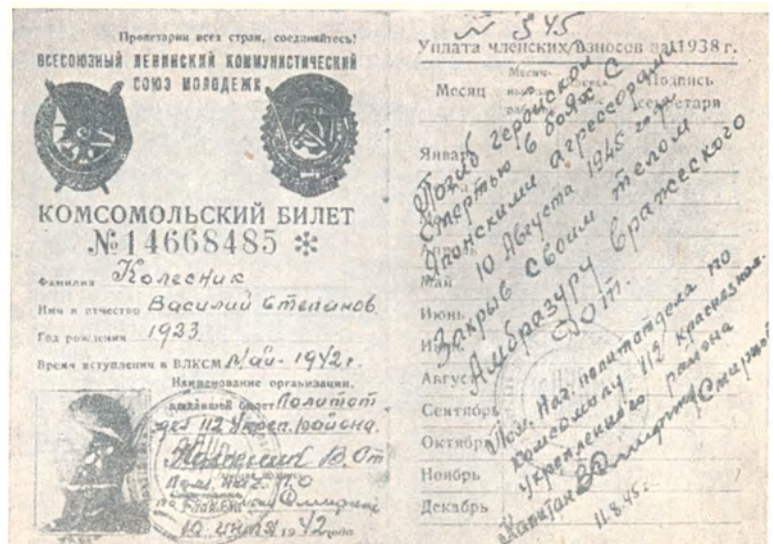 Пролетарии всех стран, соединяйтесь!
ВСЕСОЮЗНЫЙ ЛЕНИНСКИЙ КОММУНИСТИЧЕСКИЙ
СОЮЗ МОЛОДЕЖИ
КОМСОМОЛЬСКИЙ БИЛЕТ
№ 14668485 *
Фамилия Колесник
Имя и отчество Василий Степанов
Год рождения 1923
Время вступления в ВЛКСМ Май - 1942 г.
Наименование организации,
выдавшей билет Политот
дел 112 Укреп. района.
В. Ст
Пом. Нач. ПО
10 1942 года
№ 945
Уплата членских взносов на 1938 г.
Месяц
Подпись
секретаря
Январь
Май
Июнь
Август
Сентябрь
Октябрь
Ноябрь
Декабрь
Погиб геройской
смертью в боях с
Японскими агрессорами
10 Августа 1945 года
Закрыв своим телом
Амбразуру вражеского
Дот.
Пом. Нач. политотдела по
комсомолу 112 краснознам.
укрепленного района
Капитан
11.8.45г.